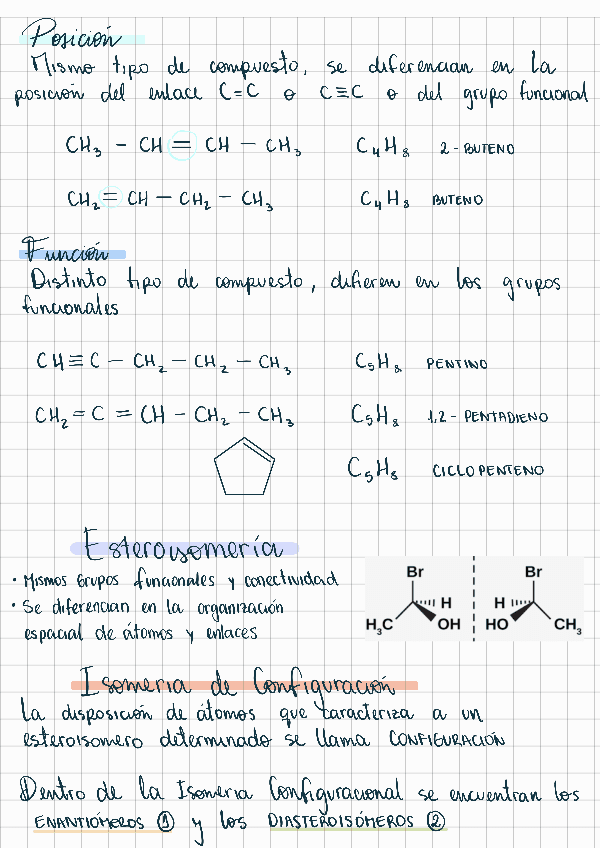 Posición
Mismo tipo de compuesto, se diferencian en la
posición del enlace C=C o C≡C o del grupo funcional
CH₃ – CH = CH – CH₃ C₄H₈ 2-BUTENO
CH₂ = CH – CH₂ – CH₃ C₄H₈ BUTENO
Función
Distinto tipo de compuesto, difieren en los grupos
funcionales
CH≡C – CH₂ – CH₂ – CH₃ C₅H₈ PENTINO
CH₂ = C = CH – CH₂ – CH₃ C₅H₈ 1,2-PENTADIENO
C₅H₈ CICLOPENTENO
Esteroisomería
· Mismos Grupos funcionales y conectividad
· Se diferencian en la organización
espacial de átomos y enlaces
Br Br
H H
H₃C OH HO CH₃
Isomeria de Configuración
La disposición de átomos que caracteriza a un
esteroisomero determinado se llama CONFIGURACIÓN
Dentro de la Isomeria Configuracional se encuentran los
ENANTIÓMEROS ① y los DIASTEROISÓMEROS ②